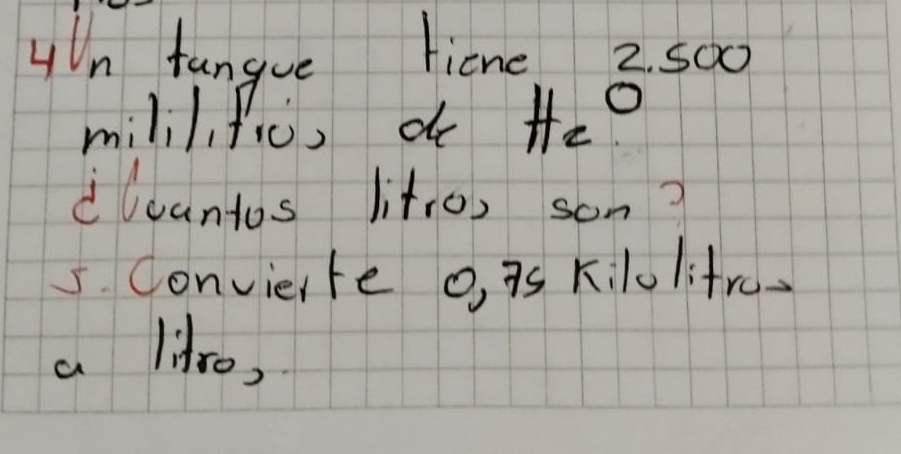 4 Un tanque tiene 2.500
mililitros de H2O.
¿Cuantos litros son?
5. Convierte 0,75 Kilolitros
a litros.